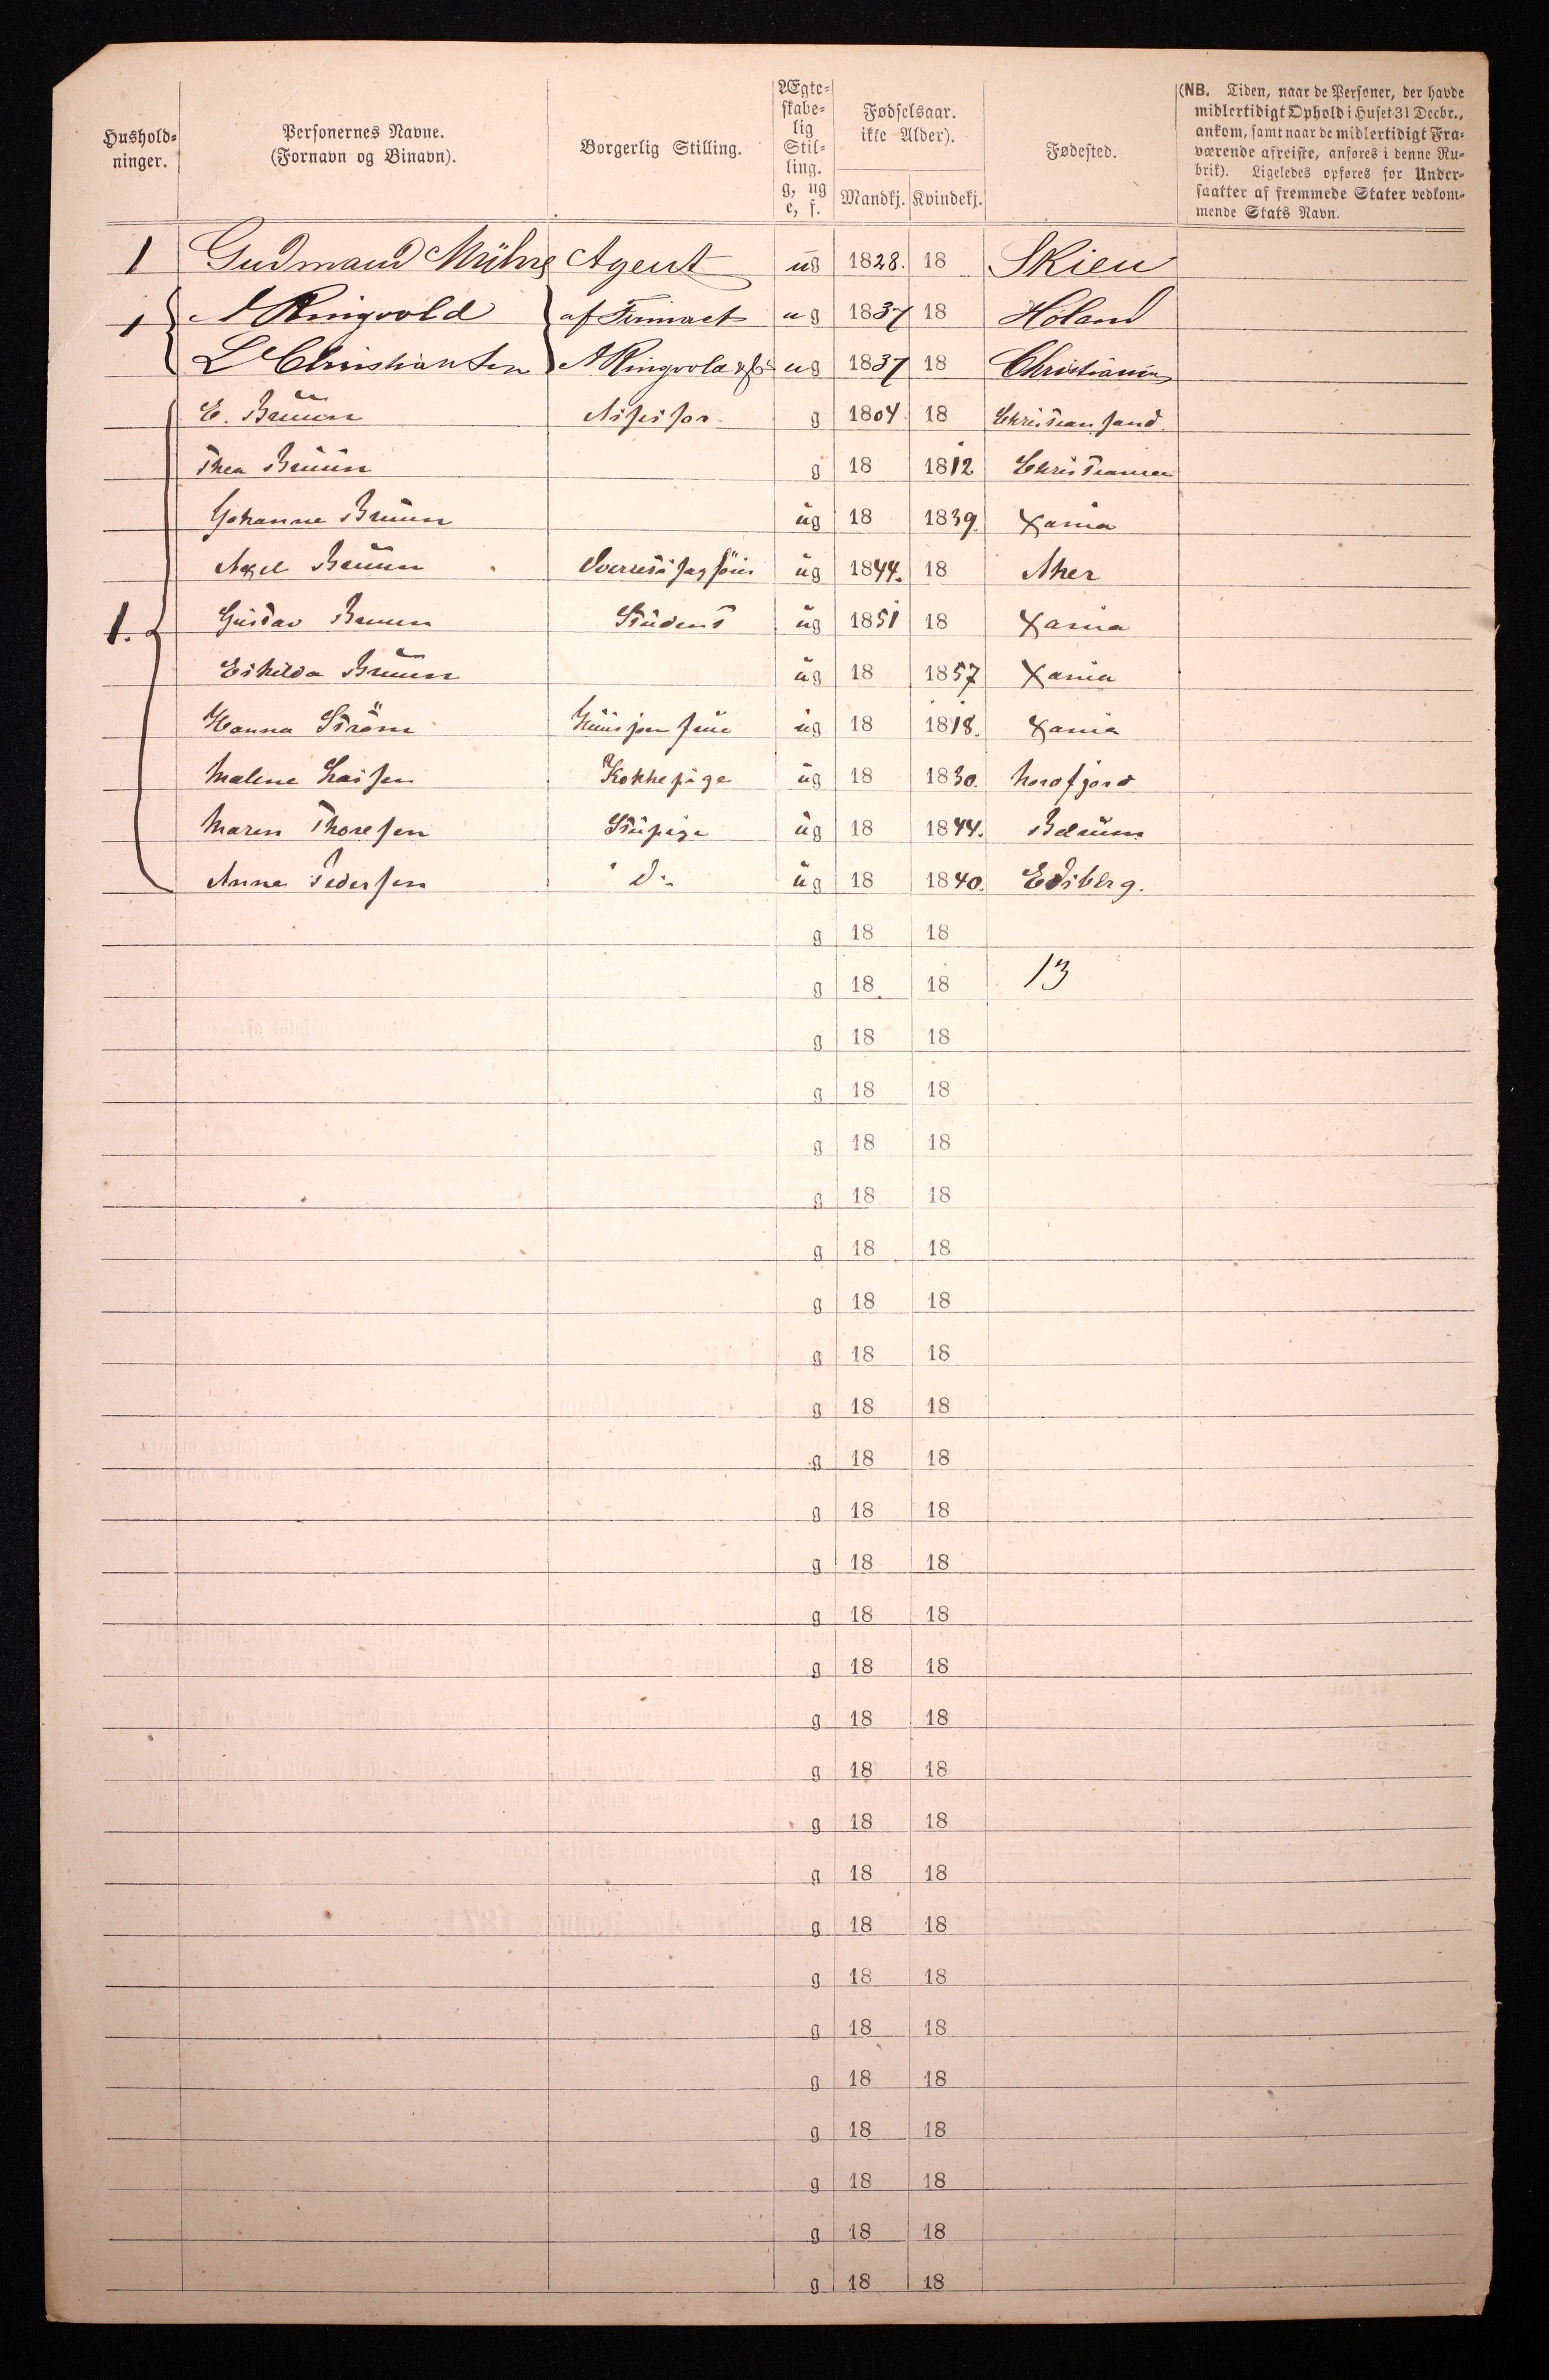 Hushold-
ninger.
Personernes Navne.
(Fornavn og Binavn).
Borgerlig Stilling.
Ægte-
skabe-
lig
Stil-
ling.
g, ug
e, f.
Fødselsaar.
ikke Alder).
Mandkj. Kvindekj.
Fødested.
(NB. Tiden, naar de Personer, der havde
midlertidigt Ophold i Huset 31 Decbr.,
ankom, samt naar de midlertidigt Fra-
værende afreiste, anføres i denne Ru-
brik). Ligeledes opføres for Under-
saatter af fremmede Stater vedkom-
mende Stats Navn.
1 Gudmand Agent ug 1828. 18 Skien
1 A Ringvold af Firmaet ug 1837 18 Høland
L Christiansen A Ringvold & Co ug 1837 18 Christiania
E. Bruun Assessor g 1804 18 Christiansand.
Thea Bruun g 18 1812 Christiania
Johanne Bruun ug 18 1839. Xania
Axel Bruun ug 1844. 18 Aker
1. Gustav Bruun Student ug 1851 18 Xania
Eskilda Bruun ug 18 1857 Xania
Hanna Strøm ug 18 1818. Xania
Malene Kokkepige ug 18 1830. Nordfjord
Maren Thoresen Stupige ug 18 1844. Bærum
Anne Pedersen Do ug 18 1840. Edsberg.
g 18 18
g 18 18 13
g 18 18
g 18 18
g 18 18
g 18 18
g 18 18
g 18 18
g 18 18
g 18 18
g 18 18
g 18 18
g 18 18
g 18 18
g 18 18
g 18 18
g 18 18
g 18 18
g 18 18
g 18 18
g 18 18
g 18 18
g 18 18
g 18 18
g 18 18
g 18 18
g 18 18